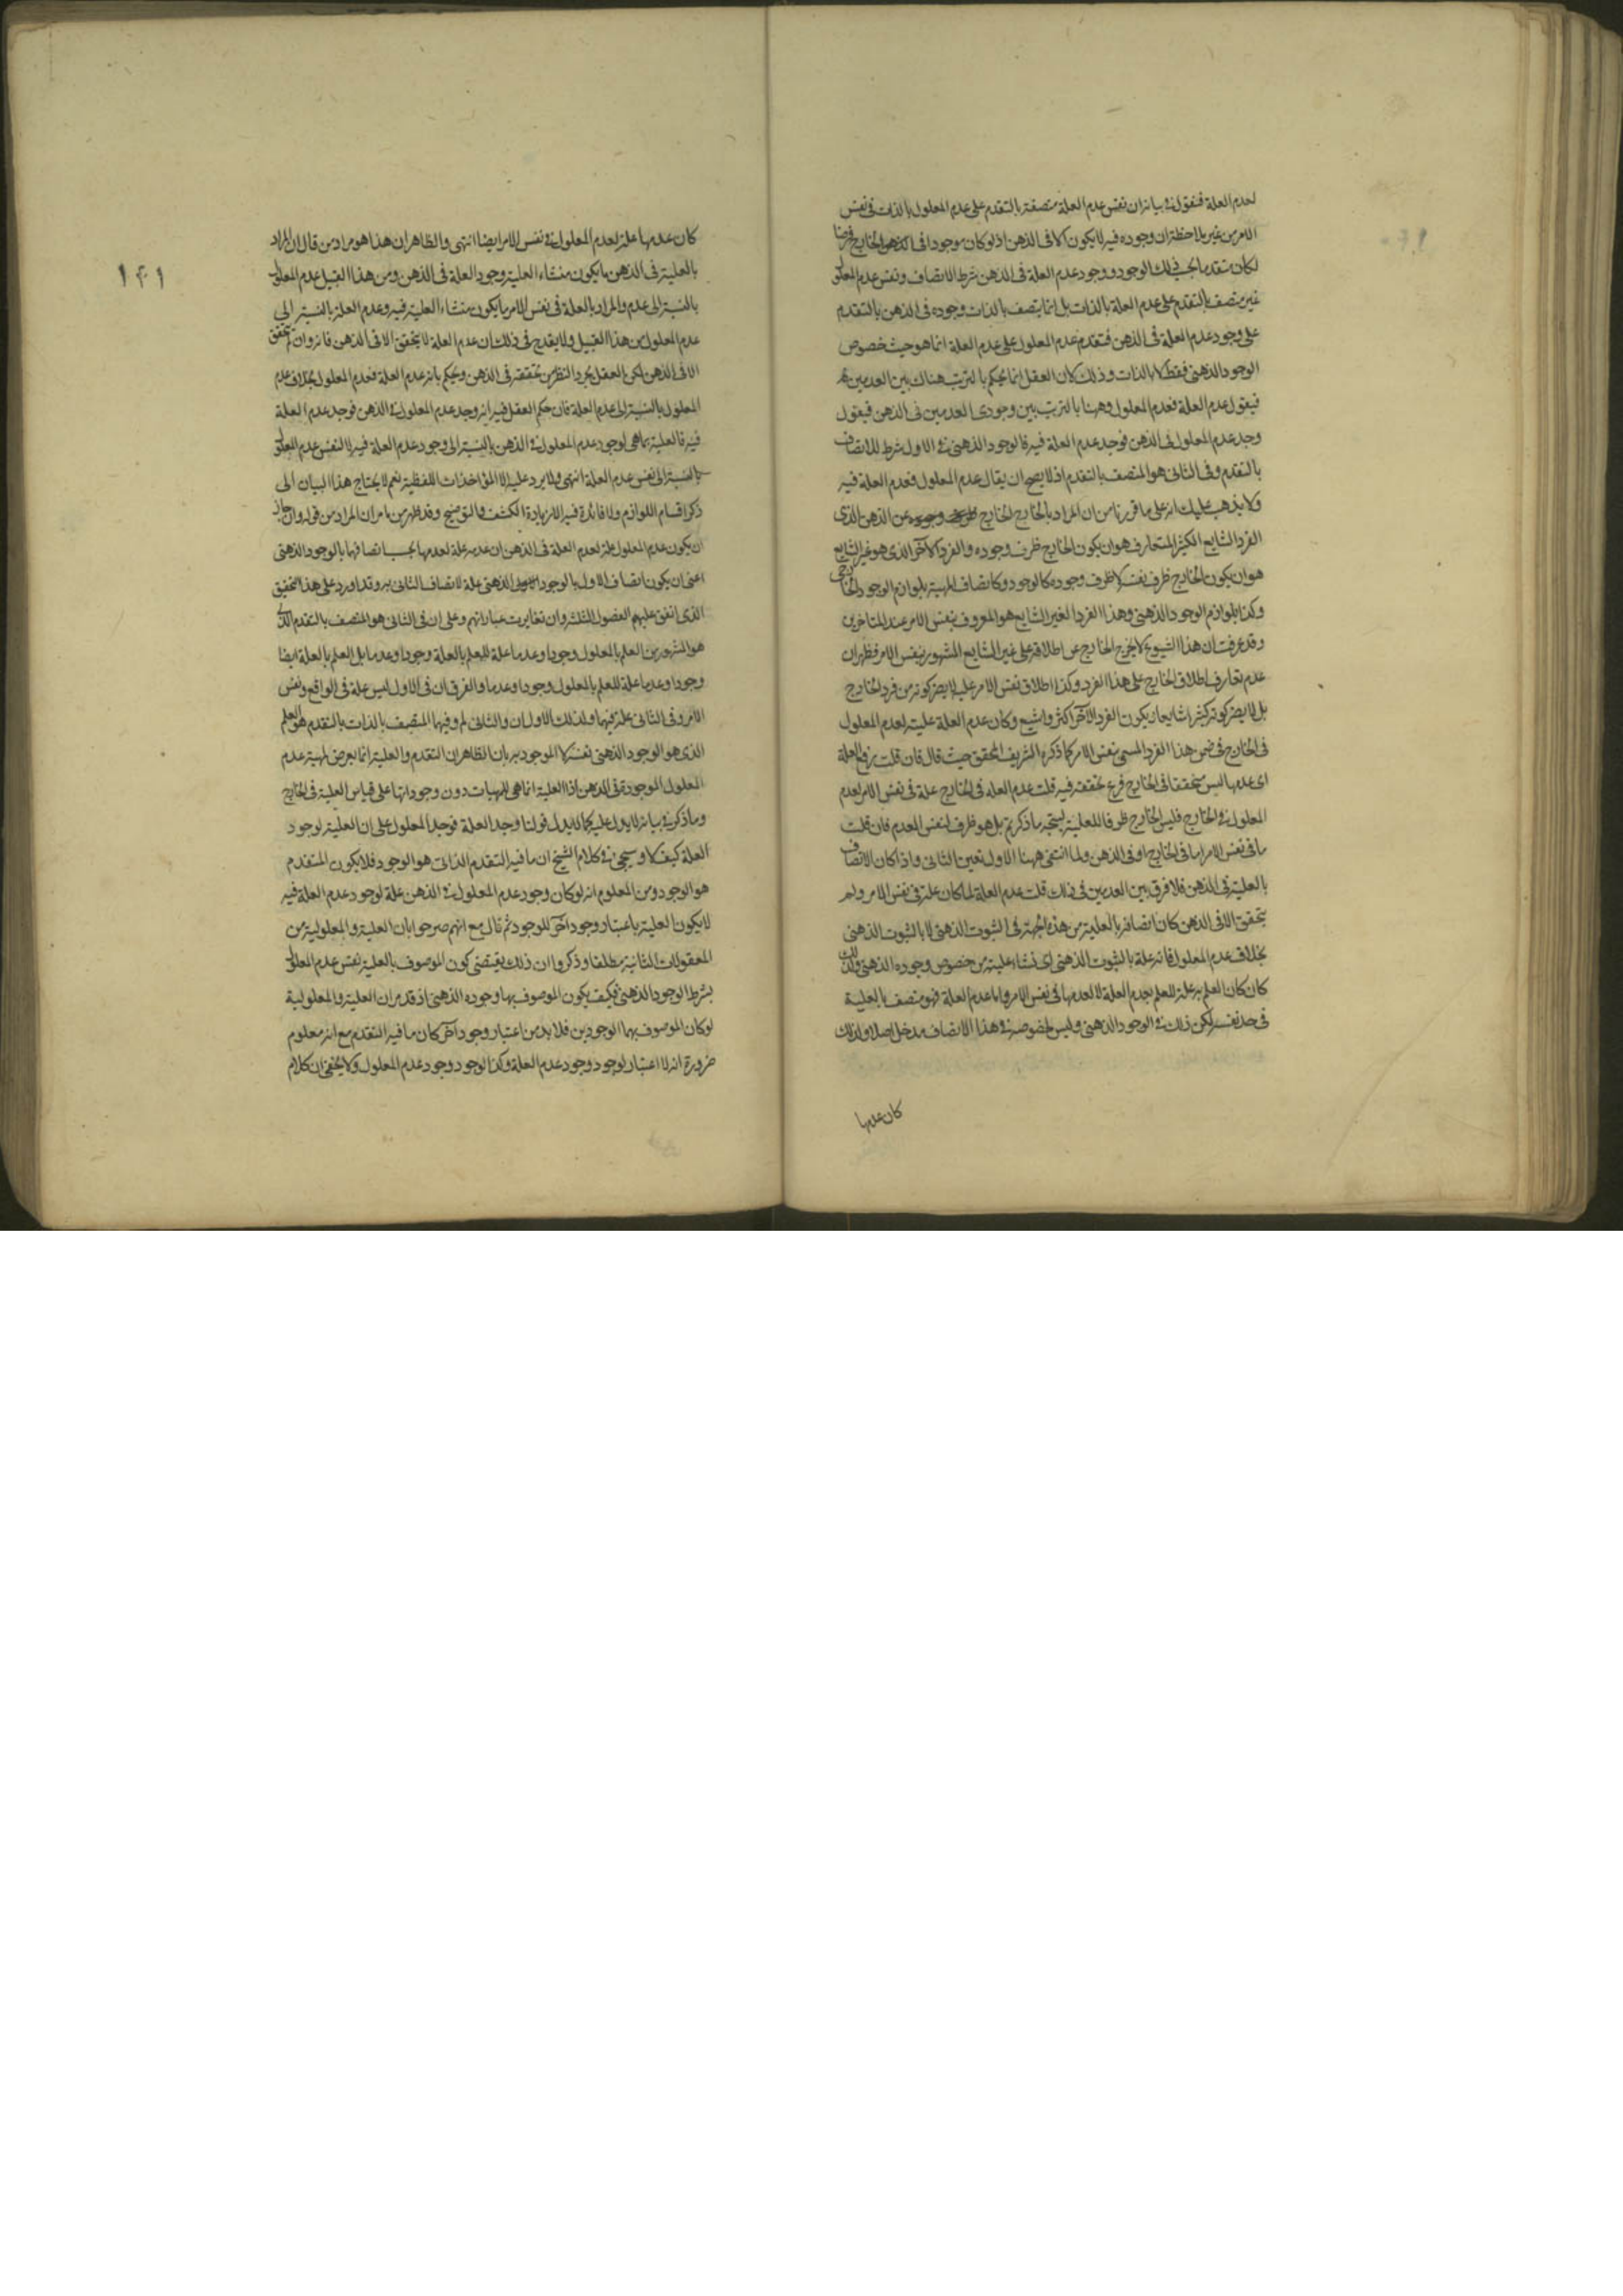 لعدم العلة فنقول في بيانه ان نفس عدم العلة متصفة بالتقدم على عدم المعلول بالذات في نفس
الامر من غير ملاحظة ان وجوده فيه لا يكون الا في الذهن اذ لو كان موجودا في الخارج فرضا
لكان متقدما بحسب ذلك الوجود ووجود عدم العلة في الذهن شرط الاتصاف ونفس عدم المعلول
غير متصف بالتقدم على عدم العلة بالذات بل انما يتصف بالذات وجوده في الذهن بالتقدم
على وجود عدم العلة في الذهن فتقدم عدم المعلول على عدم العلة انما هو حيث خصوص
الوجود الذهني فقط لا بالذات وذلك لان العقل انما يحكم بالترتب هناك بين العدمين
فيقول عدم العلة فعدم المعلول وههنا بالترتب بين وجودى العدمين في الذهن فيقول
وجد عدم المعلول في الذهن فوجد عدم العلة فيه فالوجود الذهني في الاول شرط للاتصاف
بالتقدم وفي الثاني هو المتصف بالتقدم اذ لا يصح ان يقال عدم المعلول فعدم العلة فيه
ولا يذهب عليك انه على ما قررنا من ان المراد بالخارج الخارج عن الذهن الذى
الفرد الشايع الكثير المتعارف هو ان يكون الخارج ظرف وجوده والفرد الآخر الذى هو غير الشايع
هو ان يكون الخارج ظرف نفسه لا ظرف وجوده كالوجود وكاتصاف المهية بلوازم الوجود الخارجى
وكذا بلوازم الوجود الذهني وهذا الفرد الغير الشايع هو المعروف بنفس الامر عند المتاخرين
وقد عرفت ان هذا الشيوع لا يخرج الخارج عن اطلاقه على غير الشايع المشهور بنفس الامر فظهر ان
عدم تعارف اطلاق الخارج على هذا الفرد وكذا اطلاق نفس الامر عليه لا يضر كونه من فرد الخارج
بل لا يضر كونه كثيرا شايعا ان يكون الفرد الآخر اكثر واشيع وكان عدم العلة علية لعدم المعلول
في الخارج في ضمن هذا الفرد المسمى بنفس الامر كما ذكره الشريف المحقق حيث قال فان قلت رفع العلة
اى عدمها ليس متحققا في الخارج فرع تحققه فيه قلت عدم العلة في الخارج علة في نفس الامر لعدم
المعلول في الخارج فليس الخارج ظرفا للعلية ليتجه ما ذكرتم بل هو ظرف لنفس العدم فان قلت
ما في نفس الامر اما في الخارج او في الذهن ولما انتفى ههنا الاول تعين الثاني واذا كان الاتصاف
بالعلية في الذهن فلا فرق بين العدمين في ذلك قلت عدم العلة لما كان علة في نفس الامر ولم
يتحقق الا في الذهن كان اتصافه بالعلية من هذه الجهة في الثبوت الذهني لا بالثبوت الذهني
بخلاف عدم المعلول فانه علة بالثبوت الذهني اى نشاء علية من خصوص وجوده الذهني ولذلك
كان كان العلم به علة للعلم بعدم العلة لا لعدمها في نفس الامر واما عدم العلة فهو متصف بالعلية
في حد نفسه لكن ذلك في الوجود الذهني وليس لخصوصه في هذا الاتصاف مدخل اصلا ولذلك
كان عدمها
١٤١
كان عدمها علة لعدم المعلول في نفس الامر ايضا انتهى والظاهر ان هذا هو مراد من قال ان المراد
بالعلية في الذهن ما يكون منشاء العلية وجود العلة في الذهن ومن هذا القبيل عدم المعلول
بالنسبة الى عدم والمراد بالعلة في نفس الامر ما يكون منشاء العلية فيه وعدم العلة بالنسبة الى
عدم المعلول من هذا القبيل ولا يقدح في ذلك ان عدم العلة لا يتحقق الا في الذهن فانه وان لم يتحقق
الا في الذهن لكن العقل يجرد النظر من تحققه في الذهن ويحكم بانه عدم العلة فعدم المعلول بخلاف عدم
المعلول بالنسبة الى عدم العلة فان حكم العقل فيه انه وجد عدم المعلول في الذهن فوجد عدم العلة
فيه فالعلية ما هى لوجود عدم المعلول في الذهن بالنسبة الى وجود عدم العلة فيه لا لنفس عدم المعلول
بالنسبة الى نفس عدم العلة انتهى ولا يرد عليه الا المؤاخذات اللفظية نعم لا يحتاج هذا البيان الى
ذكر اقسام اللوازم ولا فائدة فيه الا زيادة الكشف والتوضيح وقد ظهر من ما مر ان المراد من قوله وان جاز
ان يكون عدم المعلول علة لعدم العلة في الذهن ان عدمه علة لعدمها بحسب اتصافها بالوجود الذهني
اعنى ان يكون اتصاف الاول بالوجود الذهني علة لاتصاف الثاني به وقد اورد على هذا التحقيق
الذى اتفق عليهم الفضول الثلثة وان تغايرت عباراتهم وعلى ان في الثاني هو المتصف بالتقدم الذى
هو المشهور من العلم بالمعلول وجودا وعدما علة للعلم بالعلة وجودا وعدما بل العلم بالعلة ايضا
وجودا وعدما علة للعلم بالمعلول وجودا وعدما والفرق ان في الاول ليس علة في الواقع ونفس
الامر وفي الثاني علة فيهما ولذلك الاول ان والثاني لم وفيهما المتصف بالذات بالتقدم هو العلم
الذى هو الوجود الذهني نفسه لا الموجود به بان الظاهر ان التقدم والعلية انما يعرض لمهية عدم
المعلول الموجودة في الذهن اذ العلية انما هى للمهيات دون وجوداتها على قياس العلية في الخارج
وما ذكر في بيانه لا يدل عليه كما لا يدل قولنا وجد العلة فوجد المعلول على ان العلية لوجود
العلة كيف لا وسيجئ في كلام الشيخ ان ما فيه التقدم الذاتى هو الوجود فلا يكون المتقدم
هو الوجود ومن المعلوم انه لو كان وجود عدم المعلول في الذهن علة لوجود عدم العلة فيه
لا يكون العلية باعتبار وجود آخر للوجود ثم قال مع انهم صرحوا بان العلية والمعلولية من
المعقولات الثانية مطلقا وذكروا ان ذلك يقتضى كون الموصوف بالعلية نفس عدم المعلول
بشرط الوجود الذهني فكيف يكون الموصوف بها وجوده الذهني اذ قد مر ان العلية والمعلولية
لو كان الموصوف بهما الوجودين فلا بد من اعتبار وجود آخر كان ما فيه التقدم مع انه معلوم
ضرورة انه لا اعتبار لوجود وجود عدم العلة وكذا لوجود وجود عدم المعلول ولا يخفى ان كلام